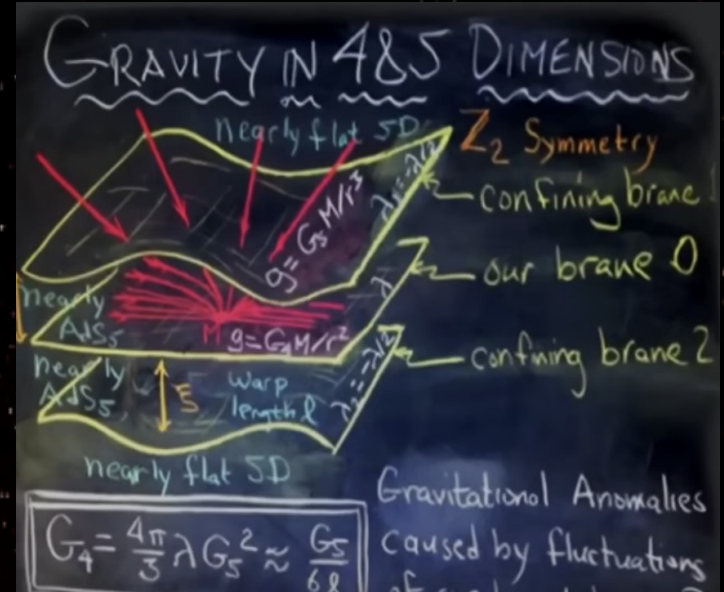 GRAVITY IN 4&5 DIMENSIONS
nearly flat 5D
Z₂ Symmetry
confining brane
g = G₅M/r³
our brane 0
nearly
AdS₅
λ
M
g=G₄M/r²
confining brane 2
nearly
AdS₅
ξ
warp
length ℓ
λ₂=-λ/2
nearly flat 5D
G₄ = 4π/3 λG₅² ≈ G₅/6ℓ
Gravitational Anomalies
caused by fluctuations